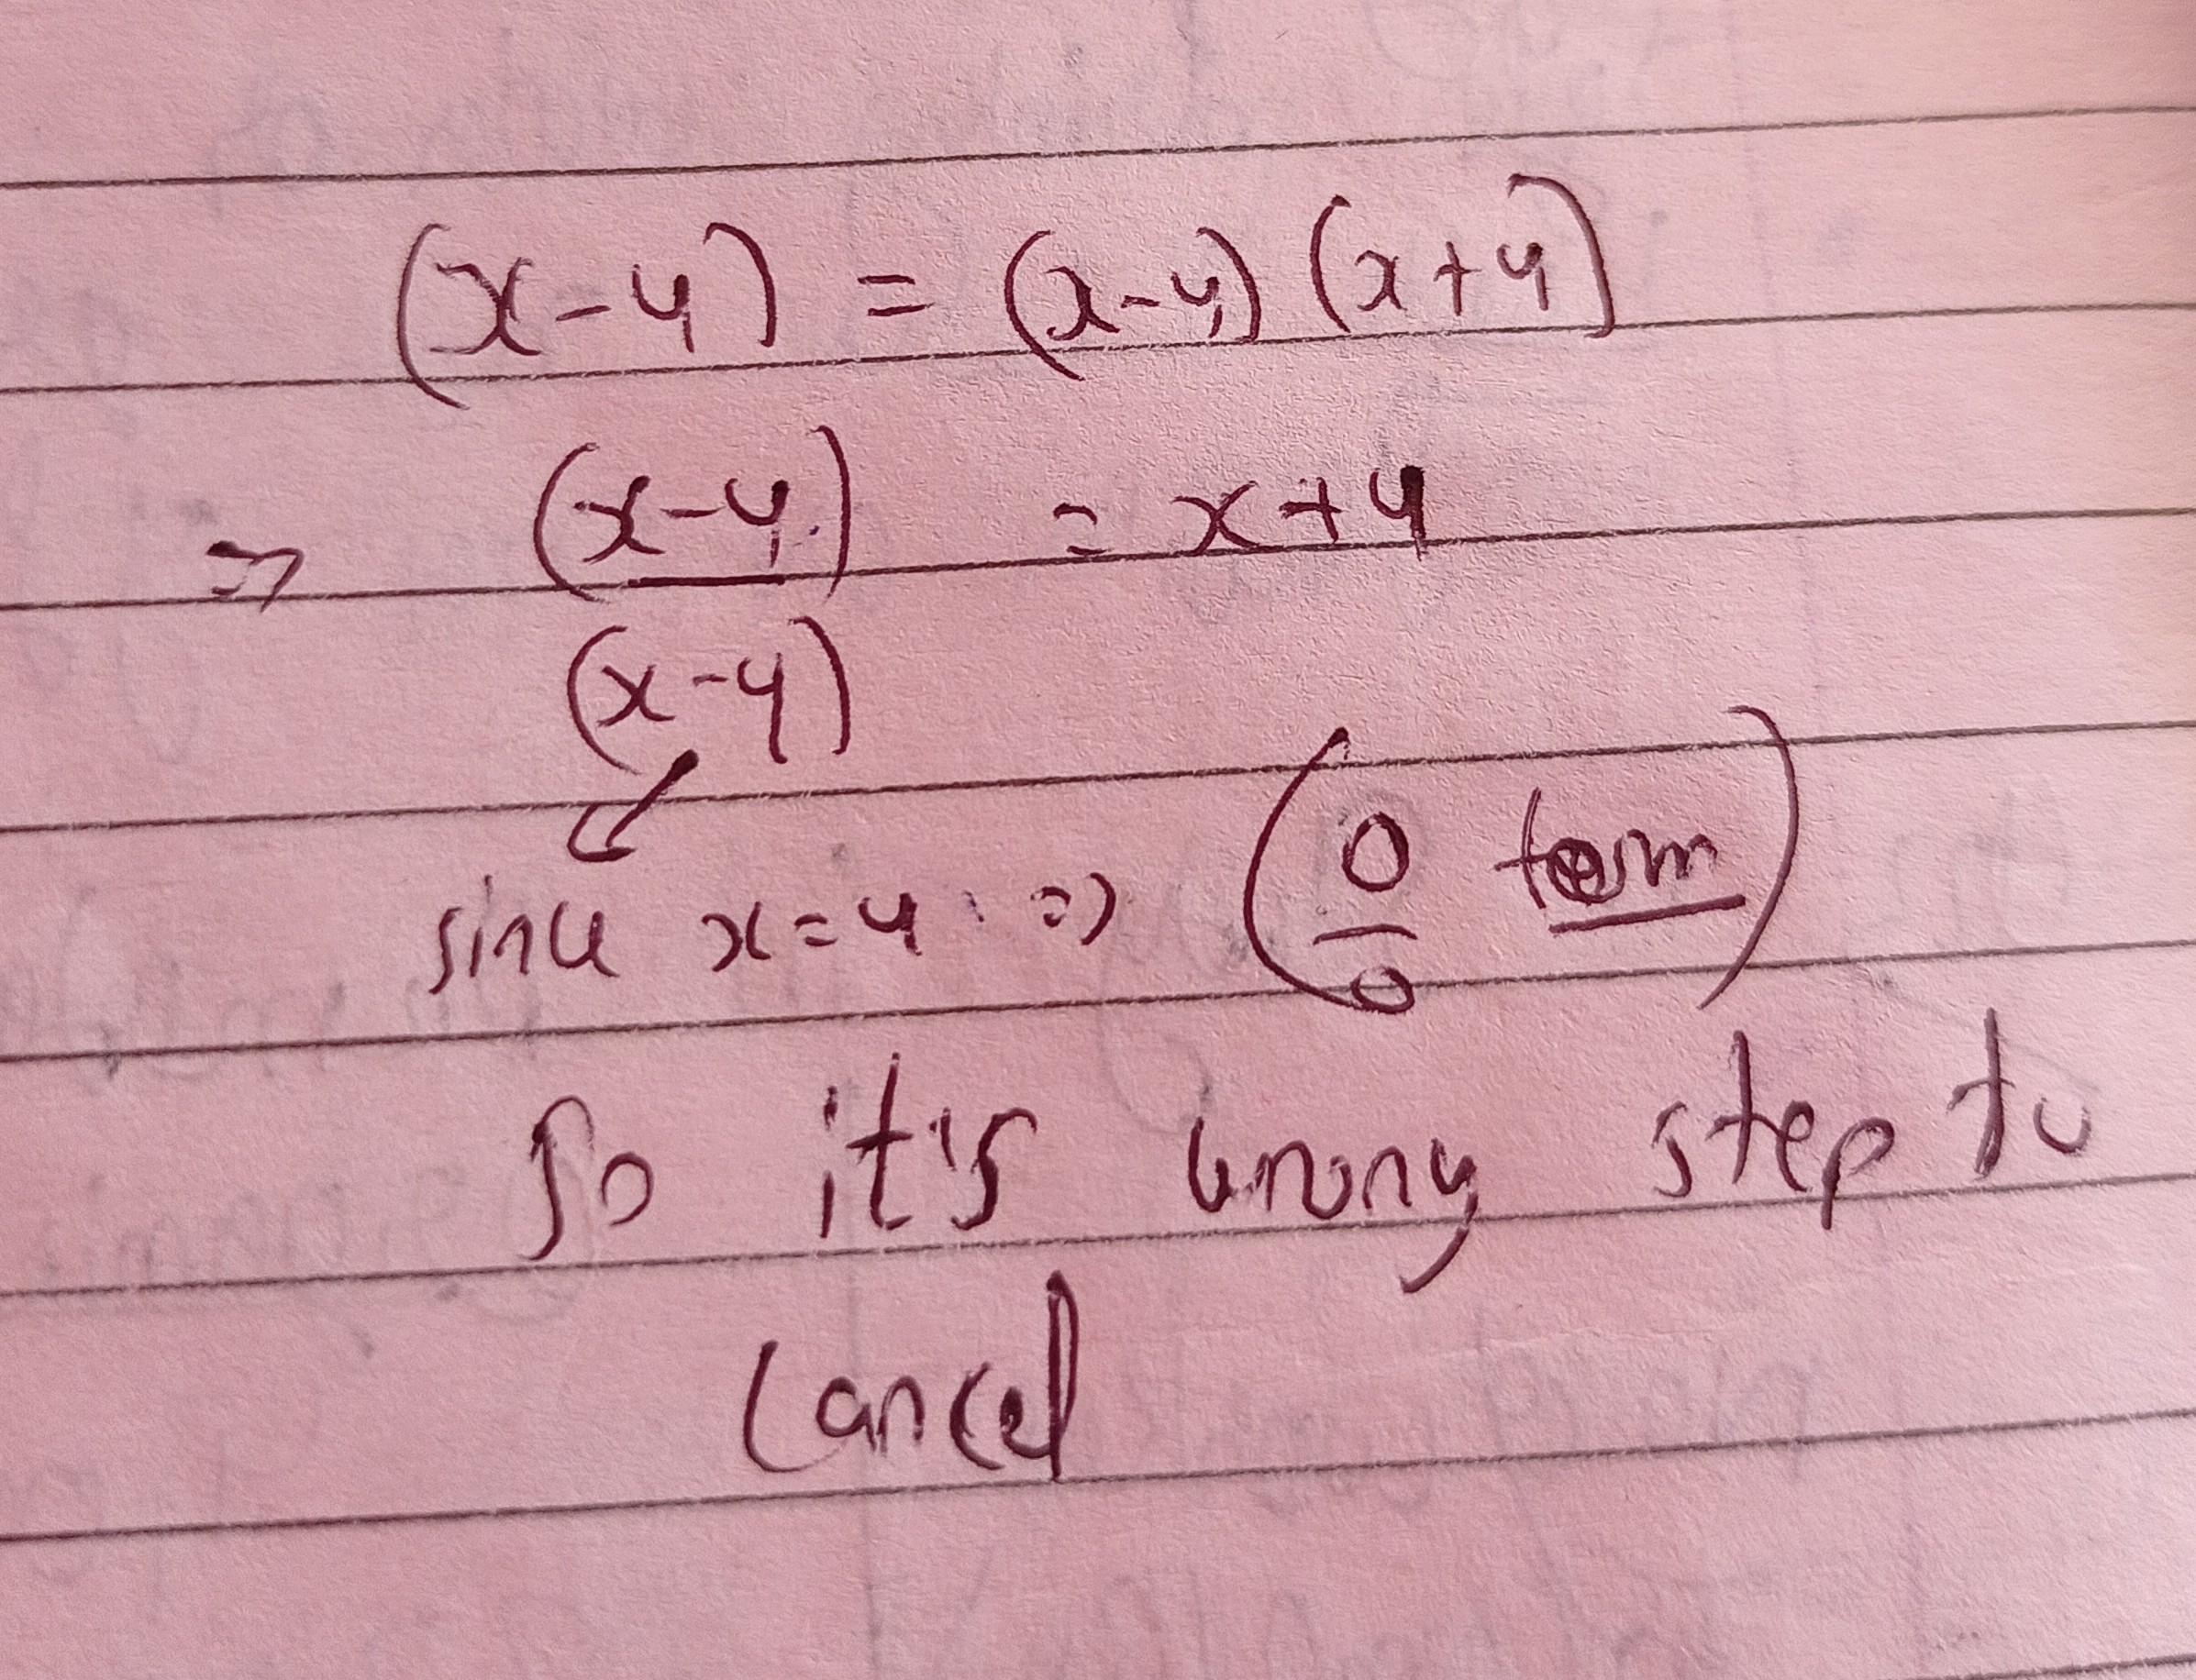 (x-4) = (x-4) (x+4)
⇒ (x-4) = x+4
(x-4)
since x=4 ⇒ (0 form)
0
So it's wrong step to
cancel